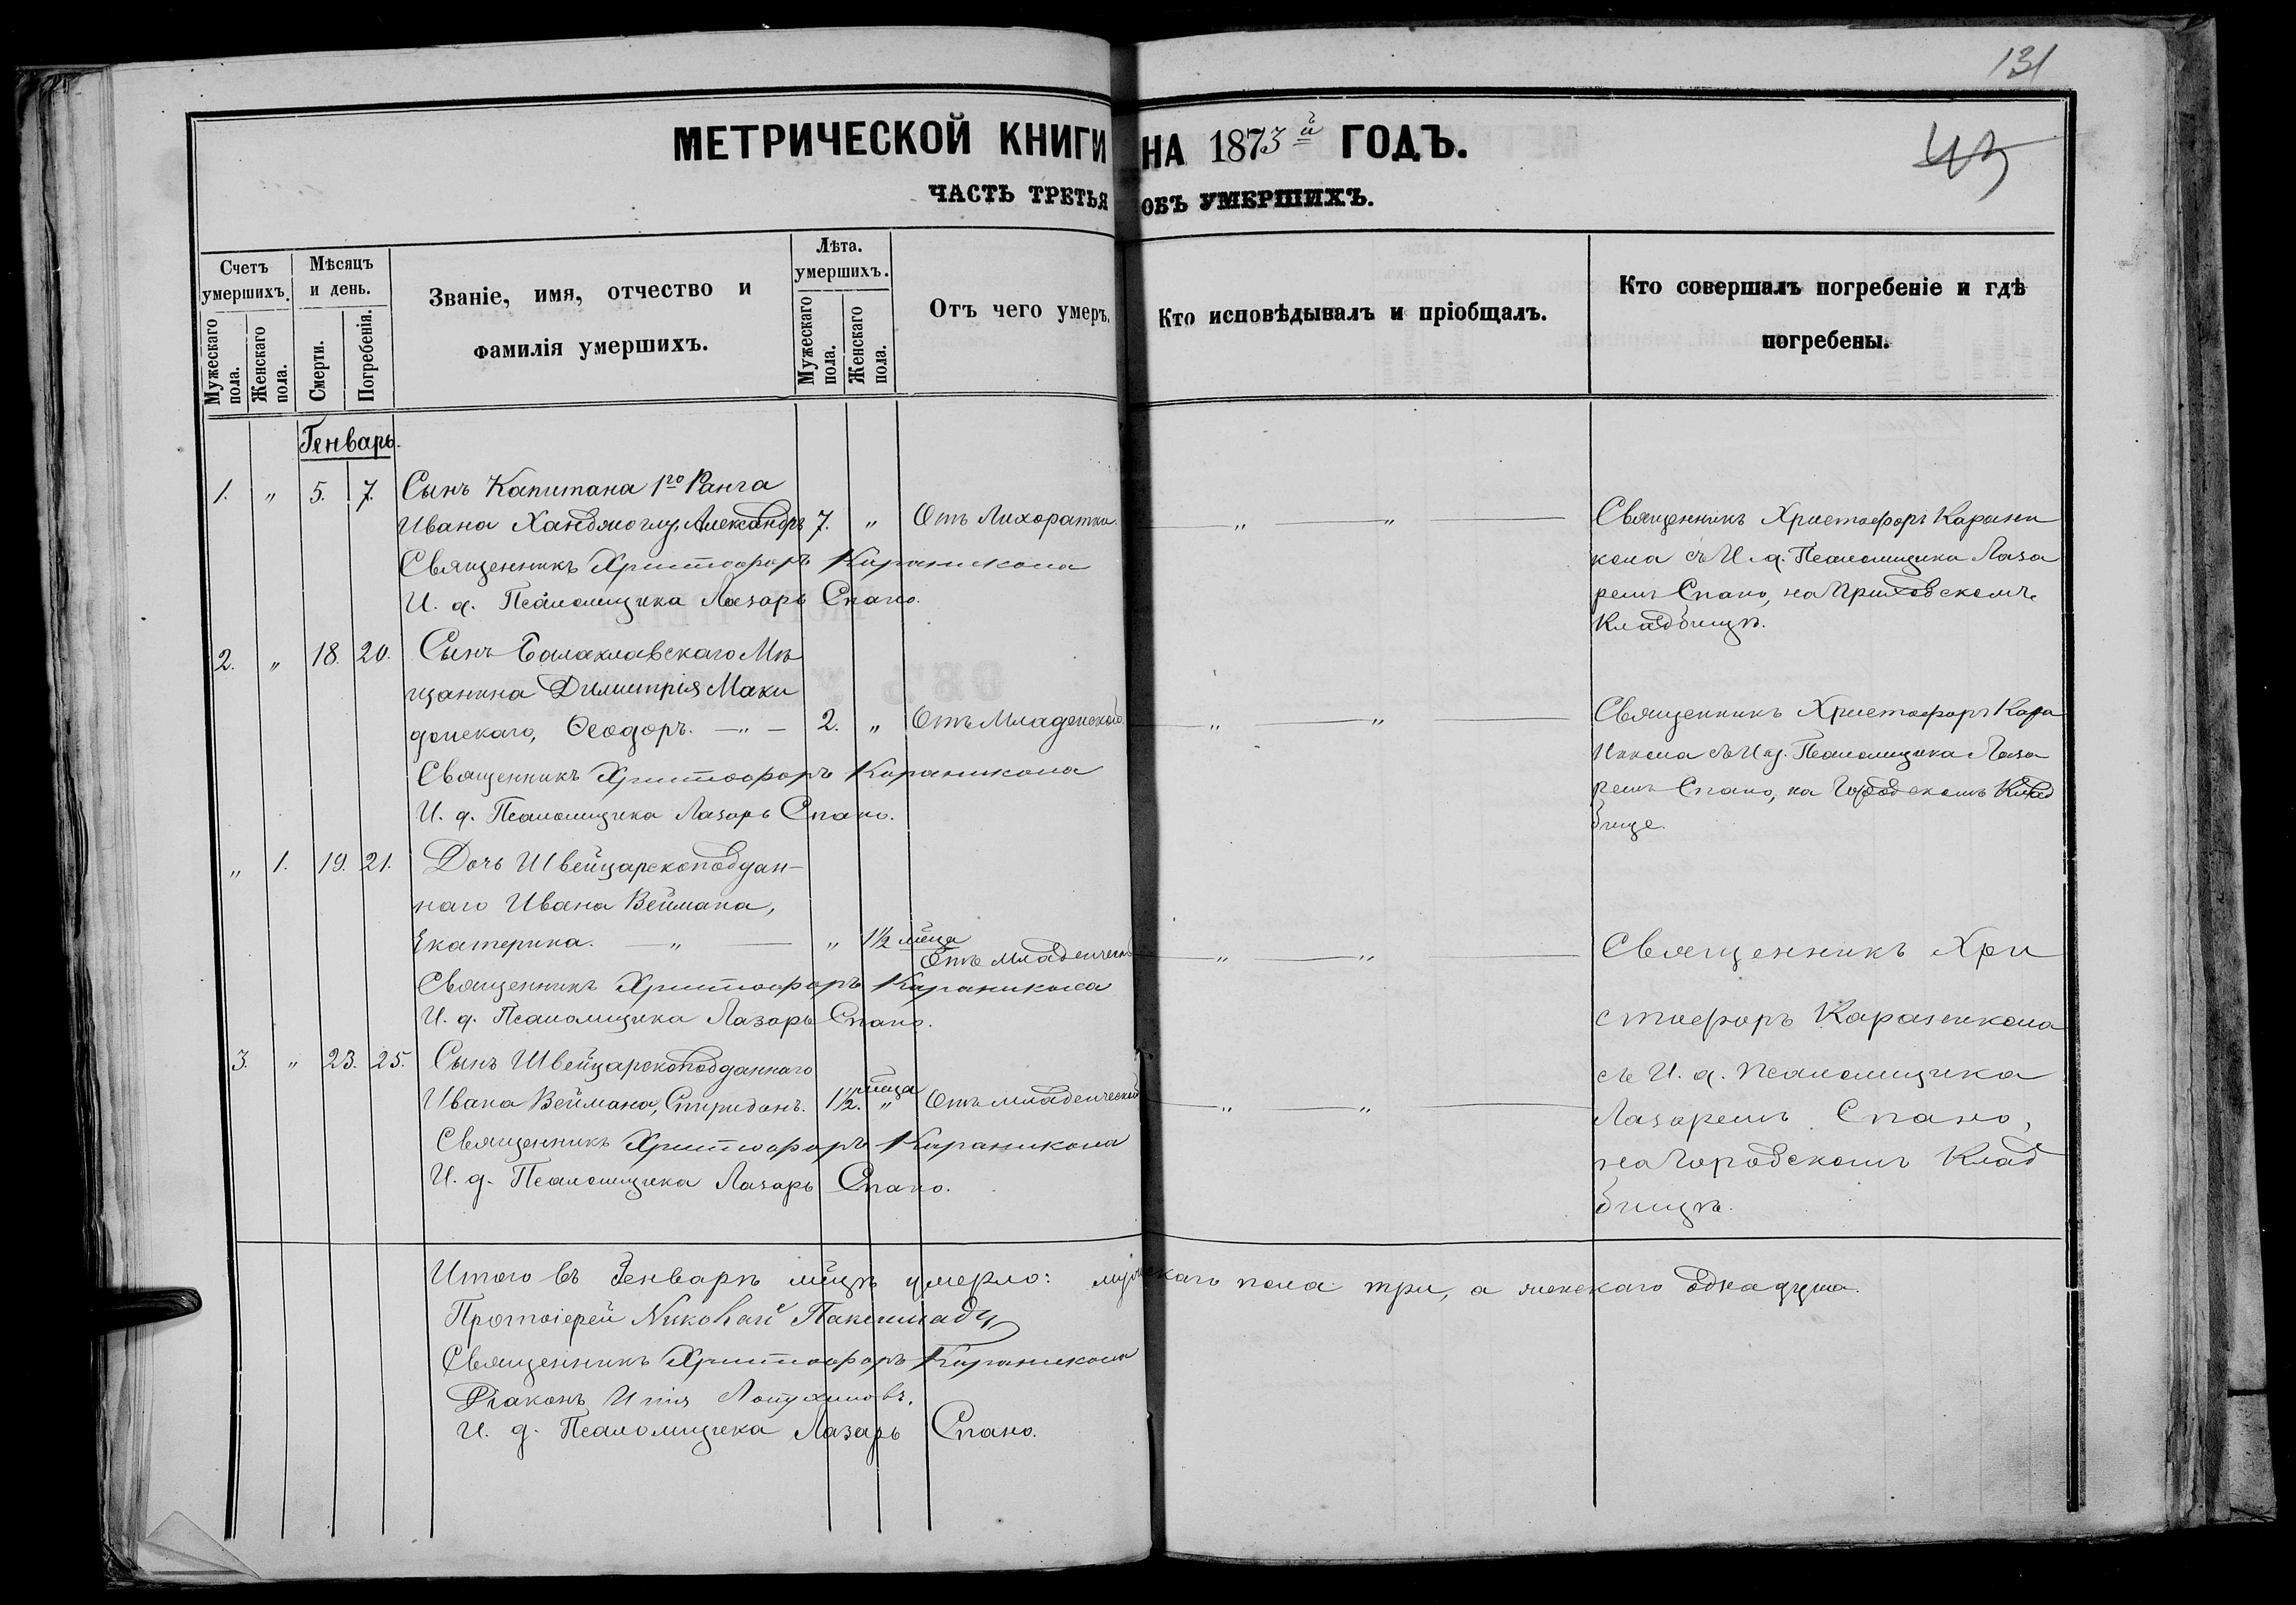 131
МЕТРИЧЕСКОЙ КНИГИ НА 1873й ГОДЪ.
43
ЧАСТЬ ТРЕТЬЯ ОБЪ УМЕРШИХЪ.
Счетъ умершихъ.
Мужескаго пола.
Женскаго пола.
Мѣсяцъ и день.
Смерти.
Погребенія.
Званіе, имя, отчество и
фамилія умершихъ.
Лѣта. умершихъ.
Мужескаго пола.
Женскаго пола.
Отъ чего умеръ.
Кто исповѣдывалъ и пріобщалъ.
Кто совершалъ погребеніе и гдѣ
погребены.
Генварь.
1. " 5. 7. Сынъ Капитана 1го Ранга
Ивана Хандмоглу, Александръ 7. " Отъ Лихоратки. " "
Священникъ Христофоръ Караникола
И. д. Псаломщика Лазарь Спано.
Священникъ Христофоръ Карани
кола съ И. д. Псаломщика Лаза
ремъ Спано, на Приходскомъ
Кладбищѣ.
2. " 18. 20. Сынъ Балаклавскаго Мѣ
щанина Димитрія Маки
донскаго, Ѳеодоръ. — " — 2. " Отъ Младенской. " "
Священникъ Христофоръ Караникола
И. д. Псаломщика Лазарь Спано.
Священникъ Христофоръ Кара
никола съ И. д. Псаломщика Лаза
ремъ Спано, на Городскомъ Клад
бище.
" 1. 19. 21. Дочь Швейцарскоподдан-
наго Ивана Веймана,
Екатерина. — " — " 1½ мѣца Отъ младенческ " "
Священникъ Христофоръ Караникола
И. д. Псаломщика Лазарь Спано.
3. " 23. 25. Сынъ Швейцарскоподданнаго
Ивана Веймана, Спиридонъ. 1½ мѣца " Отъ младенческой " "
Священникъ Христофоръ Караникола
И. д. Псаломщика Лазарь Спано.
Священникъ Хри
стофоръ Караникола
съ И. д. Псаломщика
Лазаремъ Спано,
на Городскомъ Клад
бищѣ.
Итого въ Генварѣ мѣцѣ умерло: мужескаго пола три, а женскаго одна душа.
Протоіерей Николай Паксимади
Священникъ Христофоръ Караникола
Діаконъ Илія
И. д. Псаломщика Лазарь Спано.